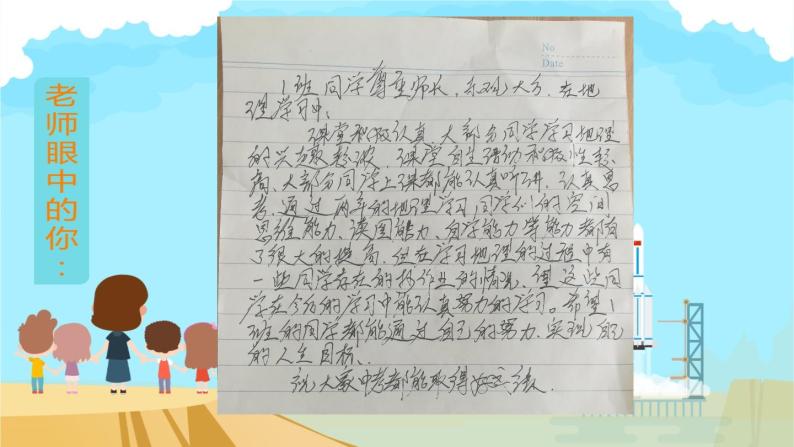 老师眼中的你：
No
Date
1班同学尊重师长，乐观大方，在地
理学习中，
课堂积极认真，大部分同学学习地理
的兴趣较浓，课堂自主活动积极性较
高、大部分同学上课都能认真听讲，认真思
考，通过两年的地理学习，同学们的空间
思维能力、读图能力、自学能力等能力都有
了很大的提高，但在学习地理的过程中有
一些同学存在的抄作业的情况，望这些同
学在今后的学习中能认真努力的学习。希望1
班的同学都能通过自己的努力，实现自己
的人生目标、
祝大家中考都能取得好成绩．